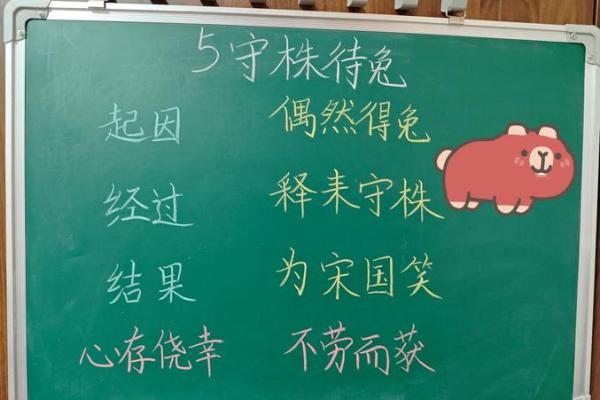 5守株待兔
起因 偶然得兔
经过 释耒守株
结果 为宋国笑
心存侥幸 不劳而获